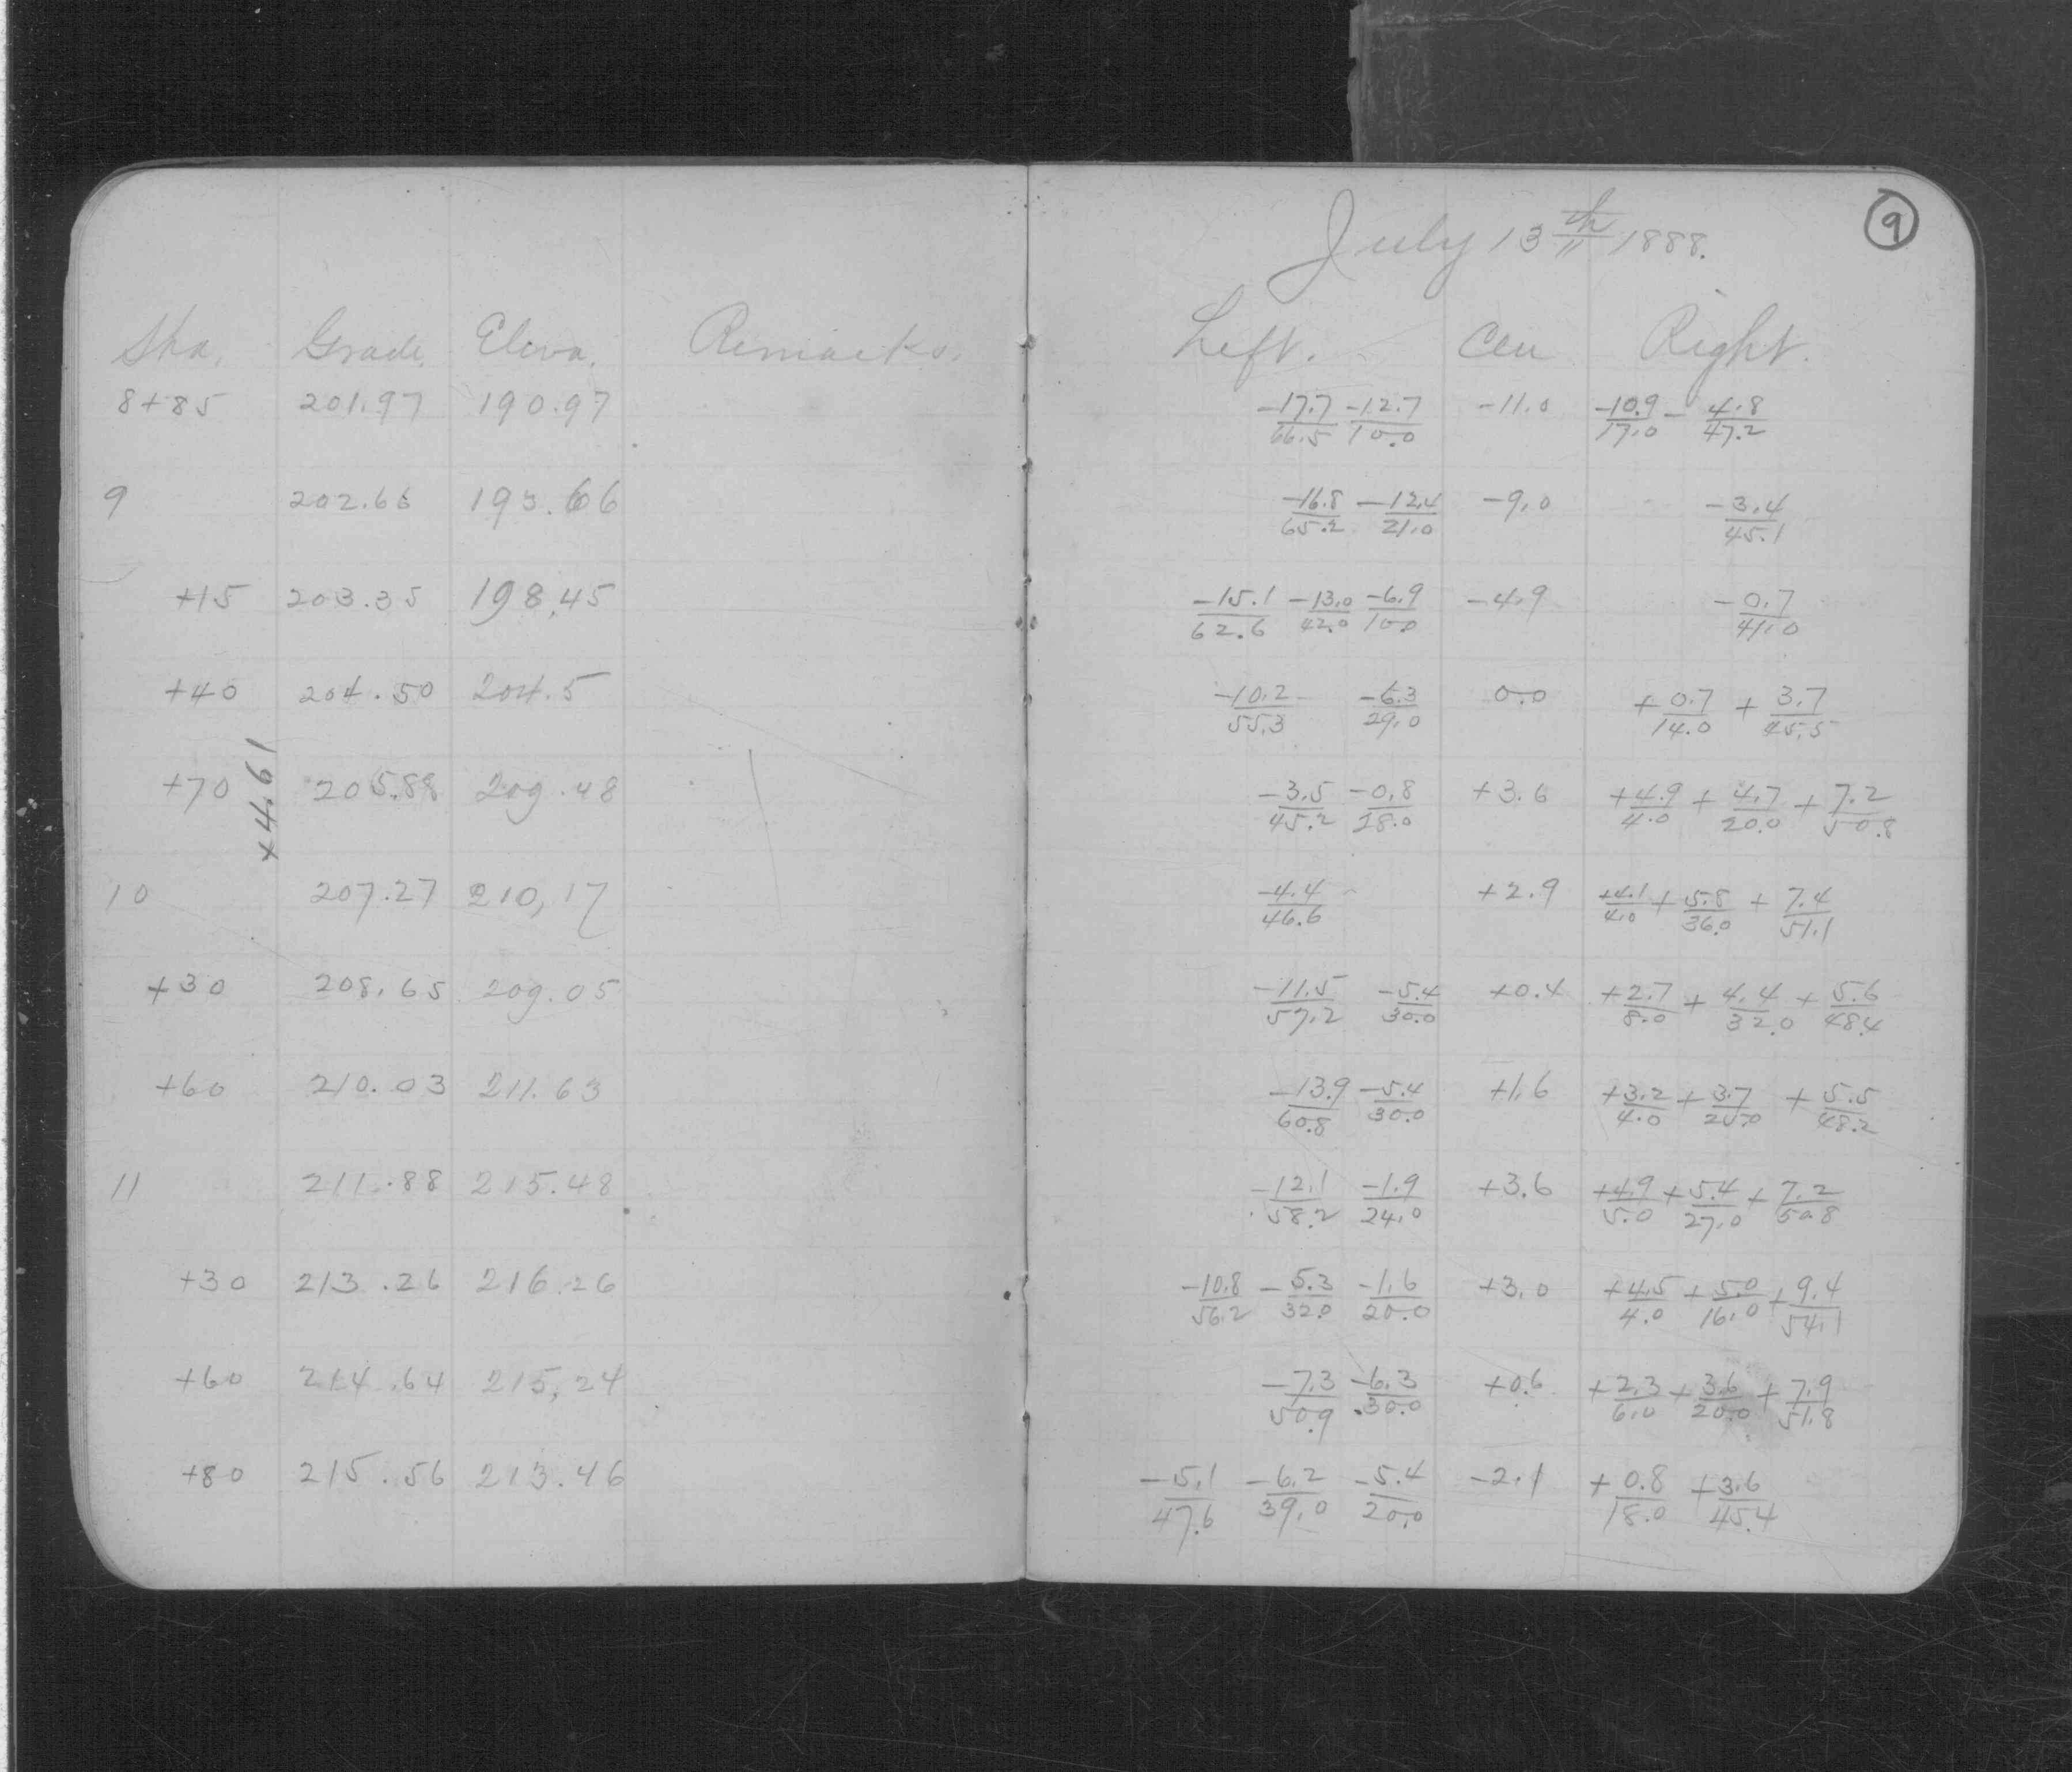 9
July 13th 1888.
Sta. Grade. Eleva. Remarks. Left. Cen Right.
8+85 201.97 190.97 -17.7/66.5 -12.7/10.0 -11.0 -10.9/17.0 -4.8/47.2
9 202.66 193.66 -16.8/65.2 -12.4/21.0 -9.0 -3.4/45.1
+15 203.35 198.45 -15.1/62.6 -13.0/42.0 -6.9/10.0 -4.9 -0.7/41.0
+40 204.50 204.5 -10.2/55.3 -6.3/29.0 0.0 +0.7/14.0 +3.7/45.5
+4.61
+70 205.88 209.48 -3.5/45.2 -0.8/18.0 +3.6 +4.9/4.0 +4.7/20.0 +7.2/50.8
10 207.27 210,17 -4.4/46.6 +2.9 +4.1/4.0 +5.8/36.0 +7.4/51.1
+30 208.65 209.05 -11.5/57.2 -5.4/30.0 +0.4 +2.7/8.0 +4.4/32.0 +5.6/48.4
+60 210.03 211.63 -13.9/60.8 -5.4/30.0 +1.6 +3.2/4.0 +3.7/20.0 +5.5/48.2
11 211.88 215.48 -12.1/58.2 -1.9/24.0 +3.6 +4.9/5.0 +5.4/27.0 +7.2/50.8
+30 213.26 216.26 -10.8/56.2 -5.3/32.0 -1.6/20.0 +3.0 +4.5/4.0 +5.0/16.0 +9.4/54.1
+60 214.64 215,24 -7.3/50.9 -6.3/30.0 +0.6 +2.3/6.0 +3.6/20.0 +7.9/51.8
+80 215.56 213.46 -5.1/47.6 -6.2/39.0 -5.4/20.0 -2.1 +0.8/18.0 +3.6/45.4